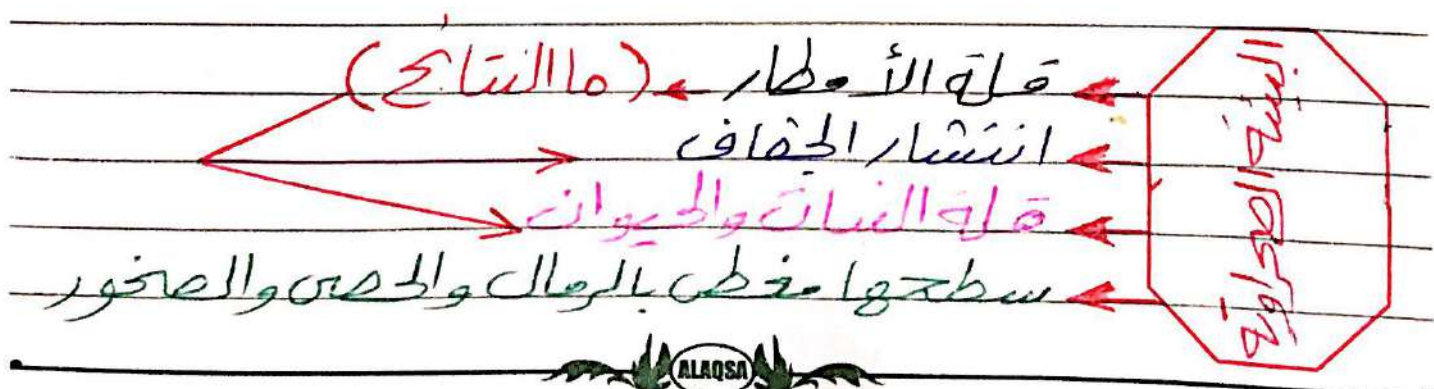 البيئة الصحراوية
قلة الأمطار (ما النتائج)
انتشار الجفاف
قلة النبات والحيوان
سطحها مغطى بالرمال والحصى والصخور
ALAQSA